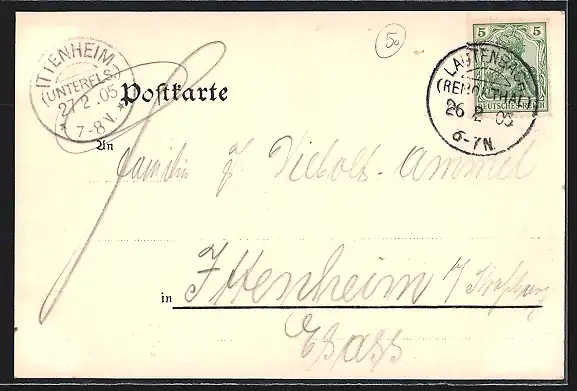 5
ITTENHEIM
(UNTERELS.)
27.2.05
7-8V.
5 5
DEUTSCHES REICH
LAUTENBACH
(RENCHTHAL)
26 2 05
6-7N.
Postkarte
An
Familie
Ammel
in Ittenheim b/ Straßburg
Elsass